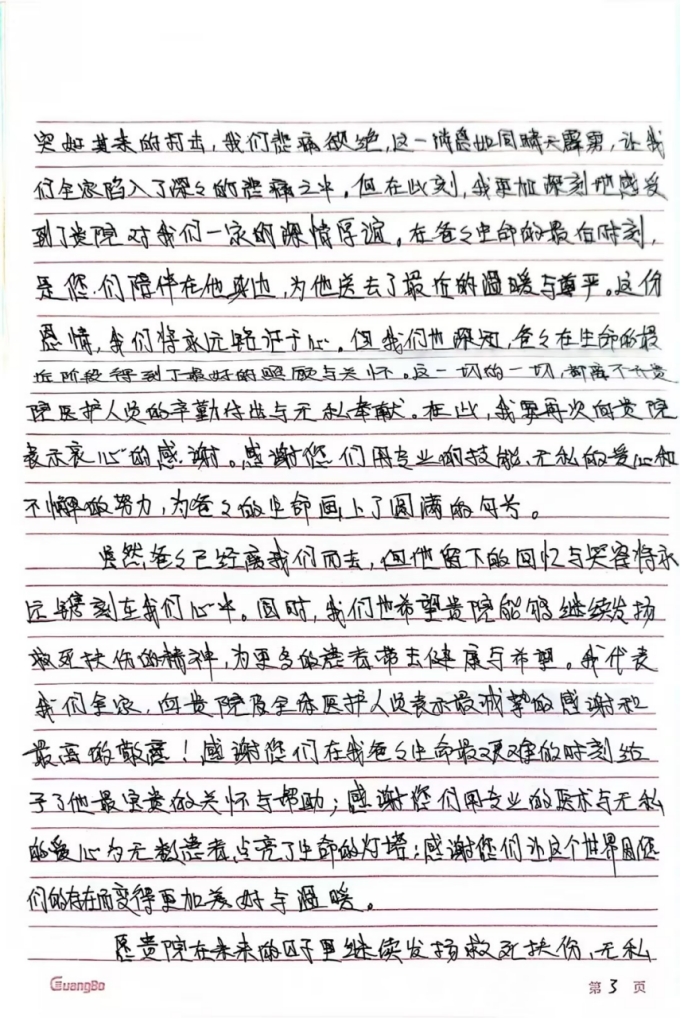 突如其来的打击,我们悲痛欲绝,这一消息如同晴天霹雳,让我
们全家陷入了深深的悲痛之中。但在此刻,我更加深刻地感受
到了贵院对我们一家的深情厚谊。在爸爸生命的最后时刻,
是您们陪伴在他身边,为他送去了最后的温暖与尊严。这份
恩情,我们将永远铭记于心。但我们也深知,爸爸在生命的最
后阶段得到了最好的照顾与关怀。这一切的一切,都离不开贵
院医护人员的辛勤付出与无私奉献。在此,我要再次向贵院
表示衷心的感谢。感谢您们用专业的技能、无私的爱心和
不懈的努力,为爸爸的生命画上了圆满的句号。
虽然爸爸已经离我们而去,但他留下的回忆与笑容将永
远镌刻在我们心中。同时,我们也希望贵院能够继续发扬
救死扶伤的精神,为更多的患者带去健康与希望。我代表
我们全家,向贵院及全体医护人员表示最诚挚的感谢和
最高的敬意!感谢您们在我爸爸生命最艰难的时刻给
予了他最宝贵的关怀与帮助;感谢您们用专业的医术与无私
的爱心为无数患者点亮了生命的灯塔;感谢您们让这个世界因您
们的存在而变得更加美好与温暖。
愿贵院在未来的日子里继续发扬救死扶伤、无私
GuangBo
第 3 页